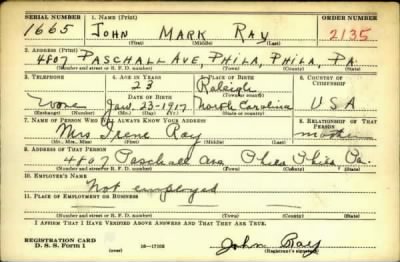 SERIAL NUMBER 1. NAME (Print) ORDER NUMBER
1665 JOHN MARK RAY 2135
(First) (Middle) (Last)
2. ADDRESS (Print)
4807 PASCHALL AVE, PHILA, PHILA, PA.
(Number and street or R. F. D. number) (Town) (County) (State)
3. TELEPHONE 4. AGE IN YEARS 5. PLACE OF BIRTH 6. COUNTRY OF CITIZENSHIP
23 Raleigh
DATE OF BIRTH (Town or county)
None Jan. 23-1917 North Carolina USA
(Exchange) (Number) (Mo.) (Day) (Yr.) (State or country)
7. NAME OF PERSON WHO WILL ALWAYS KNOW YOUR ADDRESS 8. RELATIONSHIP OF THAT PERSON
Mrs Irene Ray mother
(Mr., Mrs., Miss) (First) (Middle) (Last)
9. ADDRESS OF THAT PERSON
4807 Paschall Ave Phila Phila Pa.
(Number and street or R. F. D. number) (Town) (County) (State)
10. EMPLOYER'S NAME
Not employed
11. PLACE OF EMPLOYMENT OR BUSINESS
(Number and street or R. F. D. number) (Town) (County) (State)
I AFFIRM THAT I HAVE VERIFIED ABOVE ANSWERS AND THAT THEY ARE TRUE.
REGISTRATION CARD
D. S. S. Form 1 John Ray
(Registrant's signature)